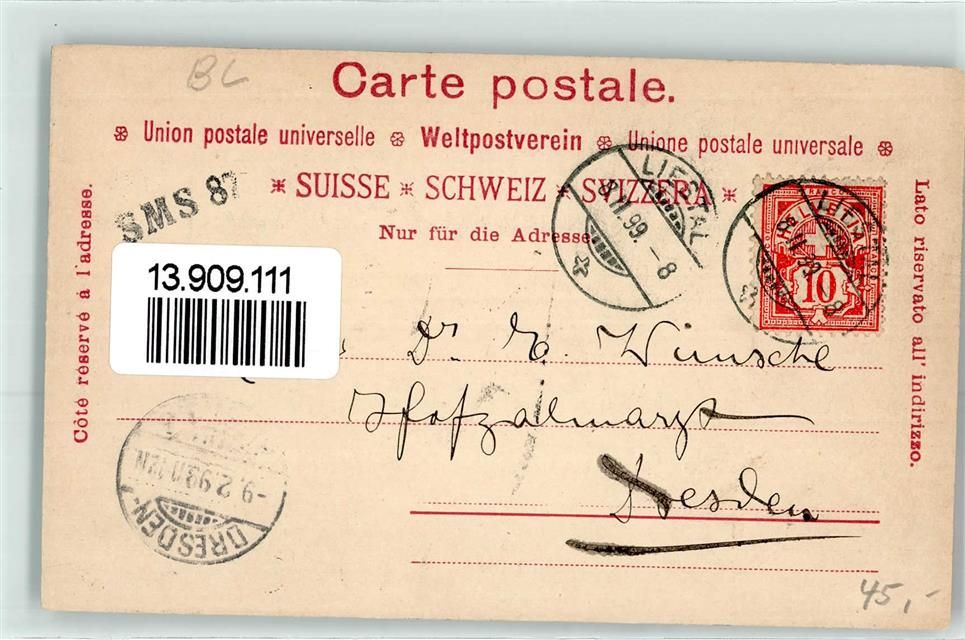 BL
Carte postale.
Union postale universelle Weltpostverein Unione postale universale
SUISSE SCHWEIZ SVIZZERA
SMS 87
Nur für die Adresse.
LIESTAL
8 II.99.-8
LIESTAL
8 II.99.-8
FRANCO
10
13.909.111
Côté réservé à l'adresse.
Lato riservato all' indirizzo.
Dr. E. Wünsche
Hofzahnarzt
Dresden
DRESDEN
-9.2.99.11-12N
45,-